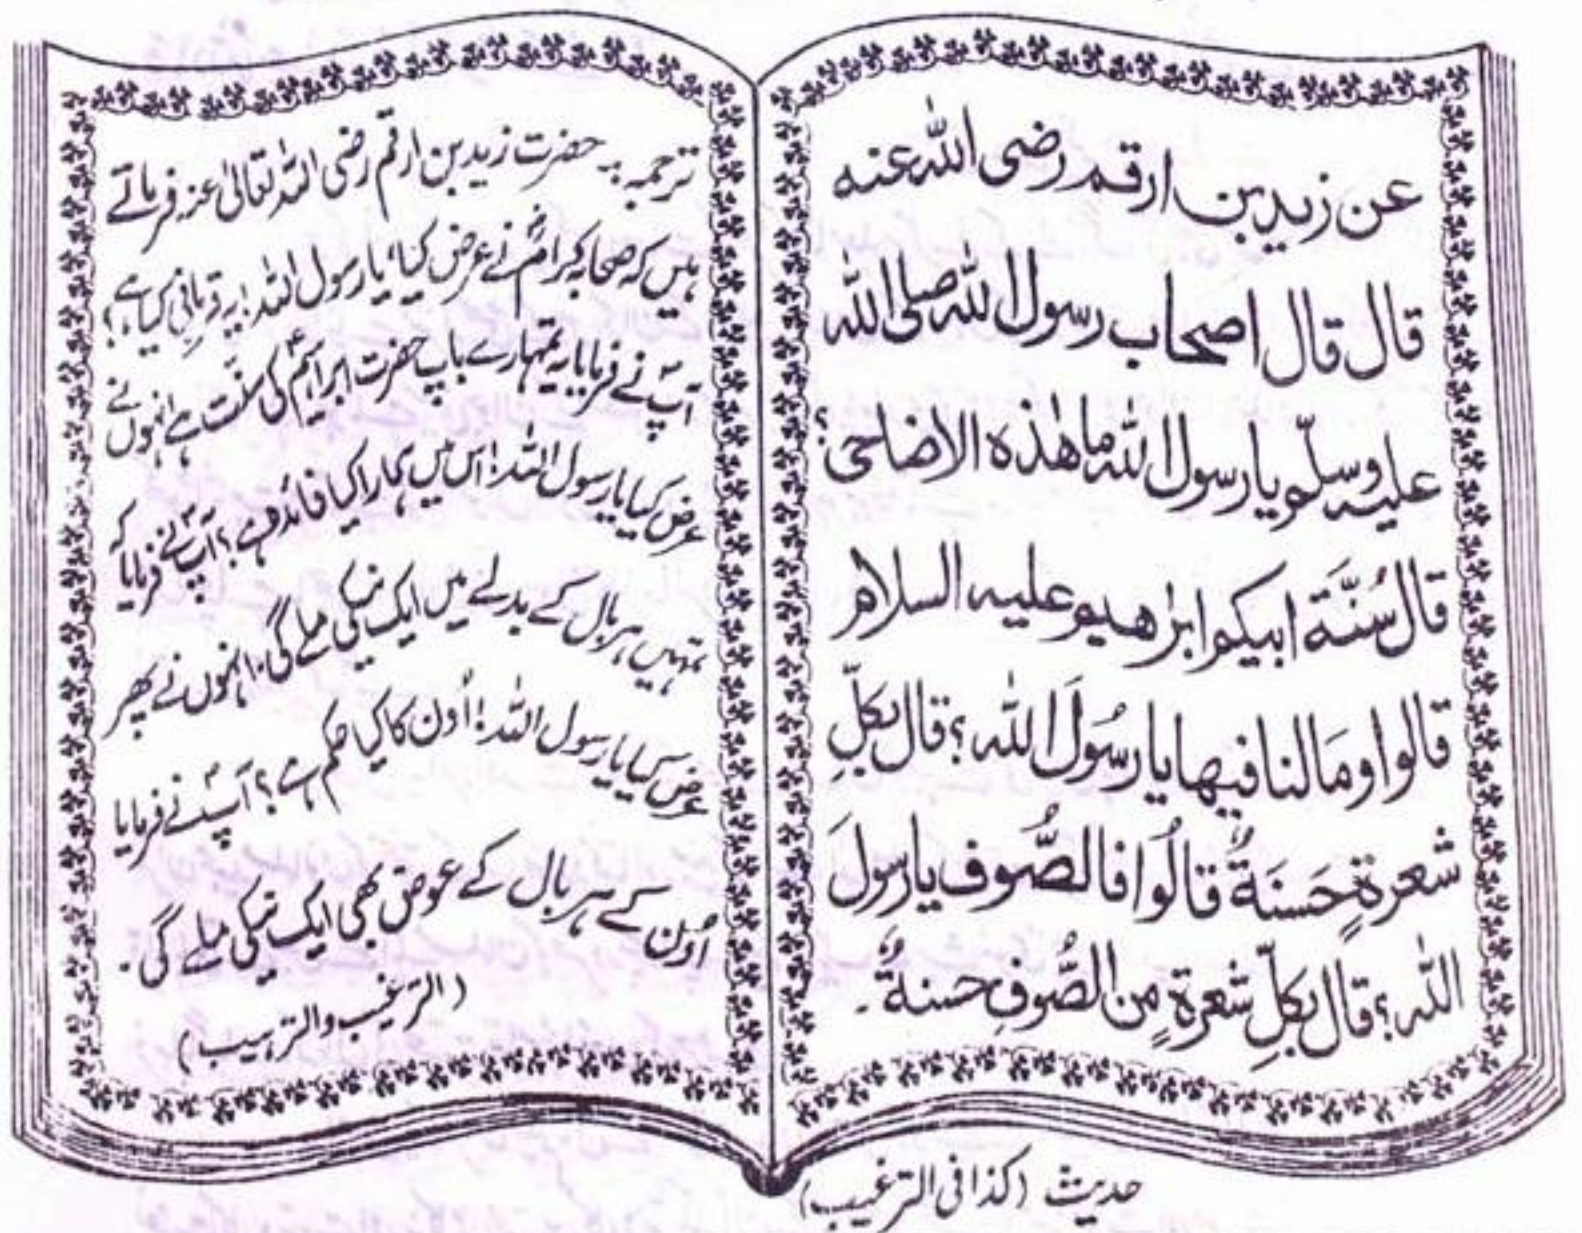 عن زید بن ارقم رضی اللہ عنہ
قال قال اصحاب رسول اللہ صلی اللہ
علیہ وسلّم یا رسول اللہ ما ھٰذہ الاضاحی؟
قال سُنَّۃ ابیکم ابرٰھیم علیہ السلام
قالوا ومَالنا فیھا یا رسُولَ اللہ؟ قال بکلِّ
شعرۃٍ حَسَنَۃٌ قالُوا فالصُّوف یارسولَ
اللہ؟ قال بکلِّ شعرۃٍ مِن الصُّوفِ حسنۃٌ۔
ترجمہ:۔ حضرت زید بن ارقم رضی اللہ تعالیٰ عنہ فرماتے
ہیں کہ صحابہ کرامؓ نے عرض کیا، یا رسول اللہ! یہ قربانی کیا ہے؟
آپؐ نے فرمایا یہ تمہارے باپ حضرت ابراہیمؑ کی سنّت ہے انہوں نے
عرض کیا یا رسول اللہ! اس میں ہمارا کیا فائدہ ہے؟ آپؐ نے فرمایا کہ
تمہیں ہر بال کے بدلے میں ایک نیکی ملے گی۔ انہوں نے پھر
عرض کیا یا رسول اللہ! اُون کا کیا حکم ہے؟ آپؐ نے فرمایا
اُون کے ہر بال کے عوض بھی ایک نیکی ملے گی۔
(الترغیب والترہیب)
حدیث (کذا فی الترغیب)